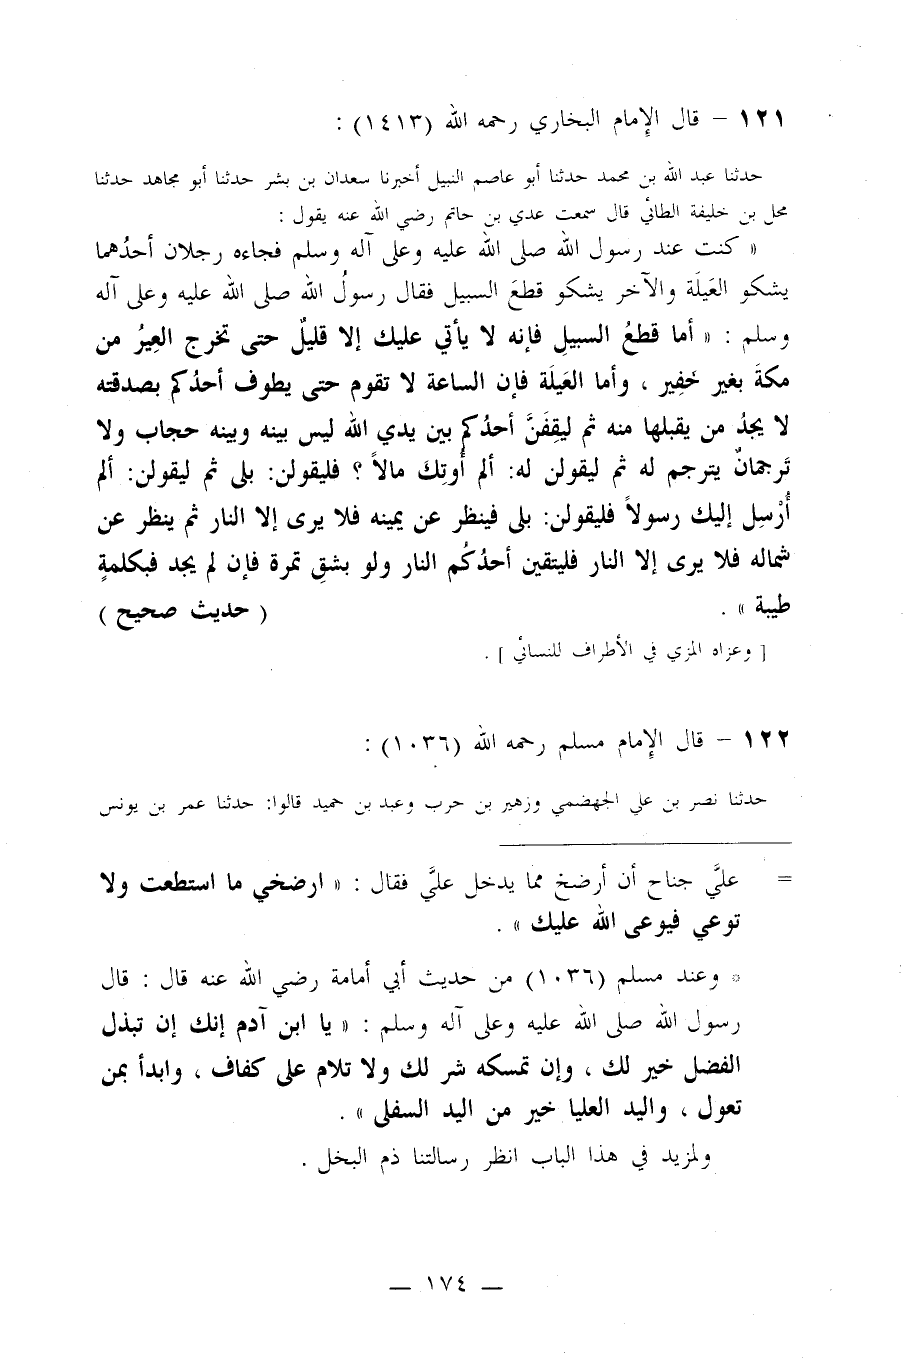 ١٢١ – قال الإِمام البخاري رحمه الله (١٤١٣) :
حدثنا عبد الله بن محمد حدثنا أبو عاصم النبيل أخبرنا سعدان بن بشر حدثنا أبو مجاهد حدثنا
محل بن خليفة الطائي قال سمعت عدي بن حاتم رضي الله عنه يقول :
« كنت عند رسول الله صلى الله عليه وعلى آله وسلم فجاءه رجلان أحدُهما
يشكو العَيلَة والآخر يشكو قطعَ السبيل فقال رسولُ الله صلى الله عليه وعلى آله
وسلم : « أما قطعُ السبيلِ فإنه لا يأتي عليك إلا قليلٌ حتى تخرج العِيرُ من
مكةَ بغير خَفِير ، وأما العَيلَة فإن الساعة لا تقوم حتى يطوف أحدُكم بصدقته
لا يجدُ من يقبلها منه ثم ليقِفَنَّ أحدُكم بين يدي الله ليس بينه وبينه حجاب ولا
تَرجمانٌ يترجم له ثم ليقولن له: ألم أُوتِكَ مالاً ؟ فليقولن: بلى ثم ليقولن: ألم
أُرْسِل إليك رسولاً فليقولن: بلى فينظر عن يمينه فلا يرى إلا النار ثم ينظر عن
شماله فلا يرى إلا النار فليتقين أحدُكُم النار ولو بشقِ تمرة فإن لم يجد فبكلمةٍ
طيبة » . ( حديث صحيح )
[ وعزاه المزي في الأطراف للنسائي ] .
١٢٢ – قال الإِمام مسلم رحمه الله (١٠٣٦) :
حدثنا نصر بن علي الجهضمي وزهير بن حرب وعبد بن حميد قالوا: حدثنا عمر بن يونس
= عليَّ جناح أن أرضخ مما يدخل عليَّ فقال : « ارضخي ما استطعت ولا
توعي فيوعى الله عليك » .
* وعند مسلم (١٠٣٦) من حديث أبي أمامة رضي الله عنه قال : قال
رسول الله صلى الله عليه وعلى آله وسلم : « يا ابن آدم إنك إن تبذل
الفضل خير لك ، وإن تمسكه شر لك ولا تلام على كفاف ، وابدأ بمن
تعول ، واليد العليا خير من اليد السفلى » .
ولمزيد في هذا الباب انظر رسالتنا ذم البخل .
— ١٧٤ —